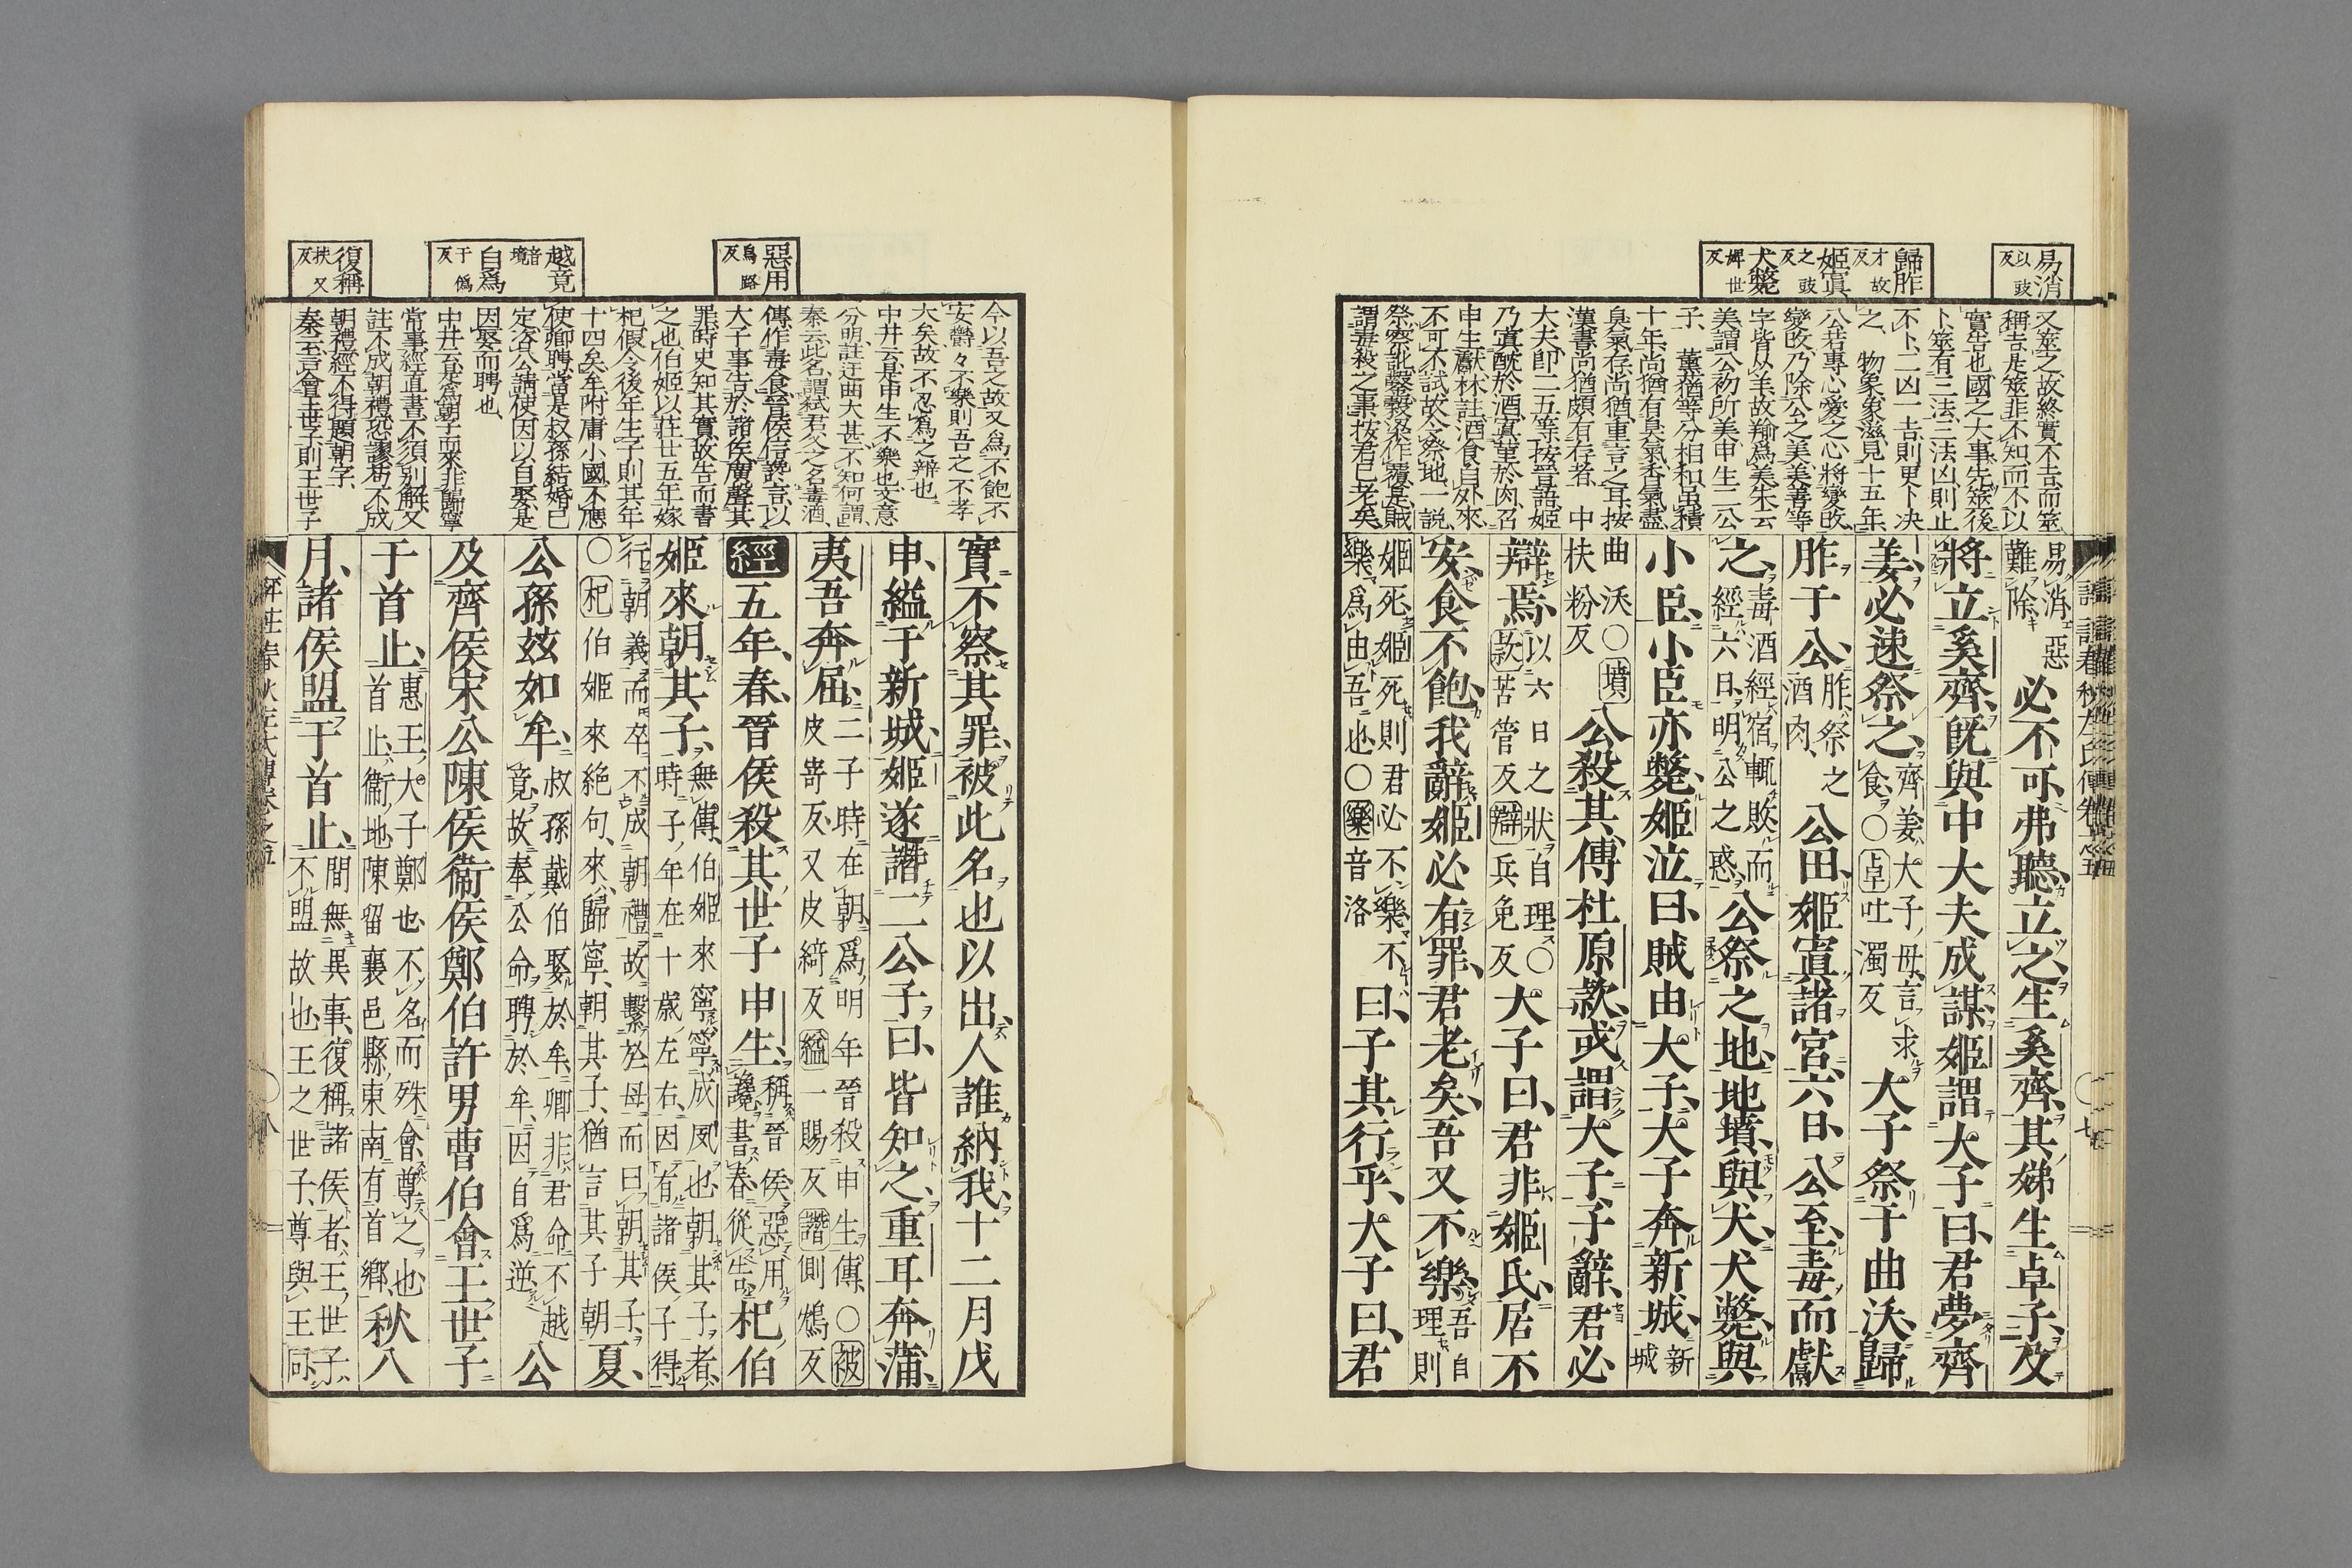 易消以豉反
歸胙才故反姬寘之豉反犬斃婢世反
又筮之故終實不吉而筮
稱吉是筮非不知而不以
實告也國之大事先筮後
卜筮有三法三法凶則止
不卜二凶一吉則更卜决
之物象象滋見十五年
公若專心愛之心將變改
變改乃除公之美美善等
字皆从羊故羭爲美朱云
美謂公初所美申生二公
子薰猶等分相和虽積
十年尚猶有臭氣香氣盡
臭氣存尚猶重言之耳按
漢書尚猶頗有存者中
大夫即二五等按晉語姬
乃寘酖於酒寘菫於肉召
申生獻林註酒食自外來
不可不試故公祭地一說
謂毒殺之事按君已老矣
易消惡難除必不可弗聽立之生奚齊其娣生卓子及
將立奚齊既與中大夫成謀姬謂大子曰君夢齊
姜必速祭之齊姜大子母言求食○卓吐濁反大子祭于曲沃歸
胙于公胙祭之酒肉公田姬寘諸宮六日公至毒而獻
之毒酒經宿輒敗而經六日明公之惑公祭之地地墳與犬犬斃與
小臣小臣亦斃姬泣曰賊由大子大子奔新城新城
曲沃○墳扶粉反公殺其傅杜原款或謂大子子辭君必
辯焉以六日之狀自理○款苦管反辯兵免反大子曰君非姬氏居不
安食不飽我辭姬必有罪君老矣吾又不樂吾自理則
姬死姬死則君必不樂不樂爲由吾也○樂音洛曰子其行乎大子曰君
惡用烏路反
越竟音境自爲于僞反
復稱扶又反
今以吾之故又爲不飽不
安鬱々不樂則吾之不孝
大矣故不忍爲之辯也
中井云是申生不樂也文意
分明註迂曲大甚不知何謂
秦云此名謂弑君父之名毒酒
傳作毒食晉侯信讒言以
大子事告於諸侯廣聲其
罪時史知其實故告而書
之也伯姬以莊廿五年嫁
杞假令後年生子則其年
十四矣牟附庸小國不應
使卿聘當是叔孫結婚已
定洛公請使因以自娶是
因娶而聘也
中井云是爲朝子而來非歸寧
常事經直書不須別解又
註不成朝禮恐謬苟不成
朝禮經不得題朝字
秦云言會王世子則王世子
實不察其罪被此名也以出人誰納我十二月戊
申縊于新城姬遂譖二公子曰皆知之重耳奔蒲
夷吾奔屈二子時在朝爲明年晉殺申生傳○被皮寄反又皮綺反縊一賜反譖側鴆反
經五年春晉侯殺其世子申生稱晉侯惡用讒書春從告杞伯
姬來朝其子無傳伯姬來寧寧成風也朝其子者時子年在十歲左右因有諸侯子得
行朝義而卒不成朝禮故繫於母而曰朝其子○杞伯姬來絶句來歸寧朝其子猶言其子朝夏
公孫茲如牟叔孫戴伯娶於牟卿非君命不越竟故奉公命聘於牟因自爲逆公
及齊侯宋公陳侯衞侯鄭伯許男曹伯會王世子
于首止惠王大子鄭也不名而殊會尊之也首止衞地陳留襄邑縣東南有首鄉秋八
月諸侯盟于首止間無異事復稱諸侯者王世子不盟故也王之世子尊與王同